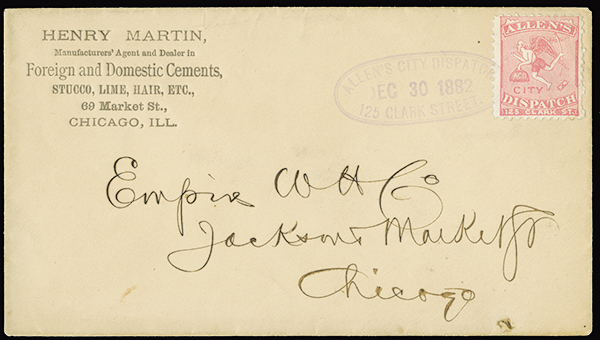 HENRY MARTIN,
Manufacturers' Agent and Dealer in
Foreign and Domestic Cements,
STUCCO, LIME, HAIR, ETC.,
69 Market St.,
CHICAGO, ILL.
ALLEN'S CITY DISPATCH
DEC 30 1882
125 CLARK STREET.
ALLEN'S
CITY
DISPATCH
125 CLARK ST.
Empire W H Co
Jackson & Market St
Chicago